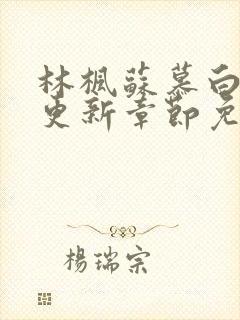 林楓蘇慕白
更新章節免
楊瑞宗